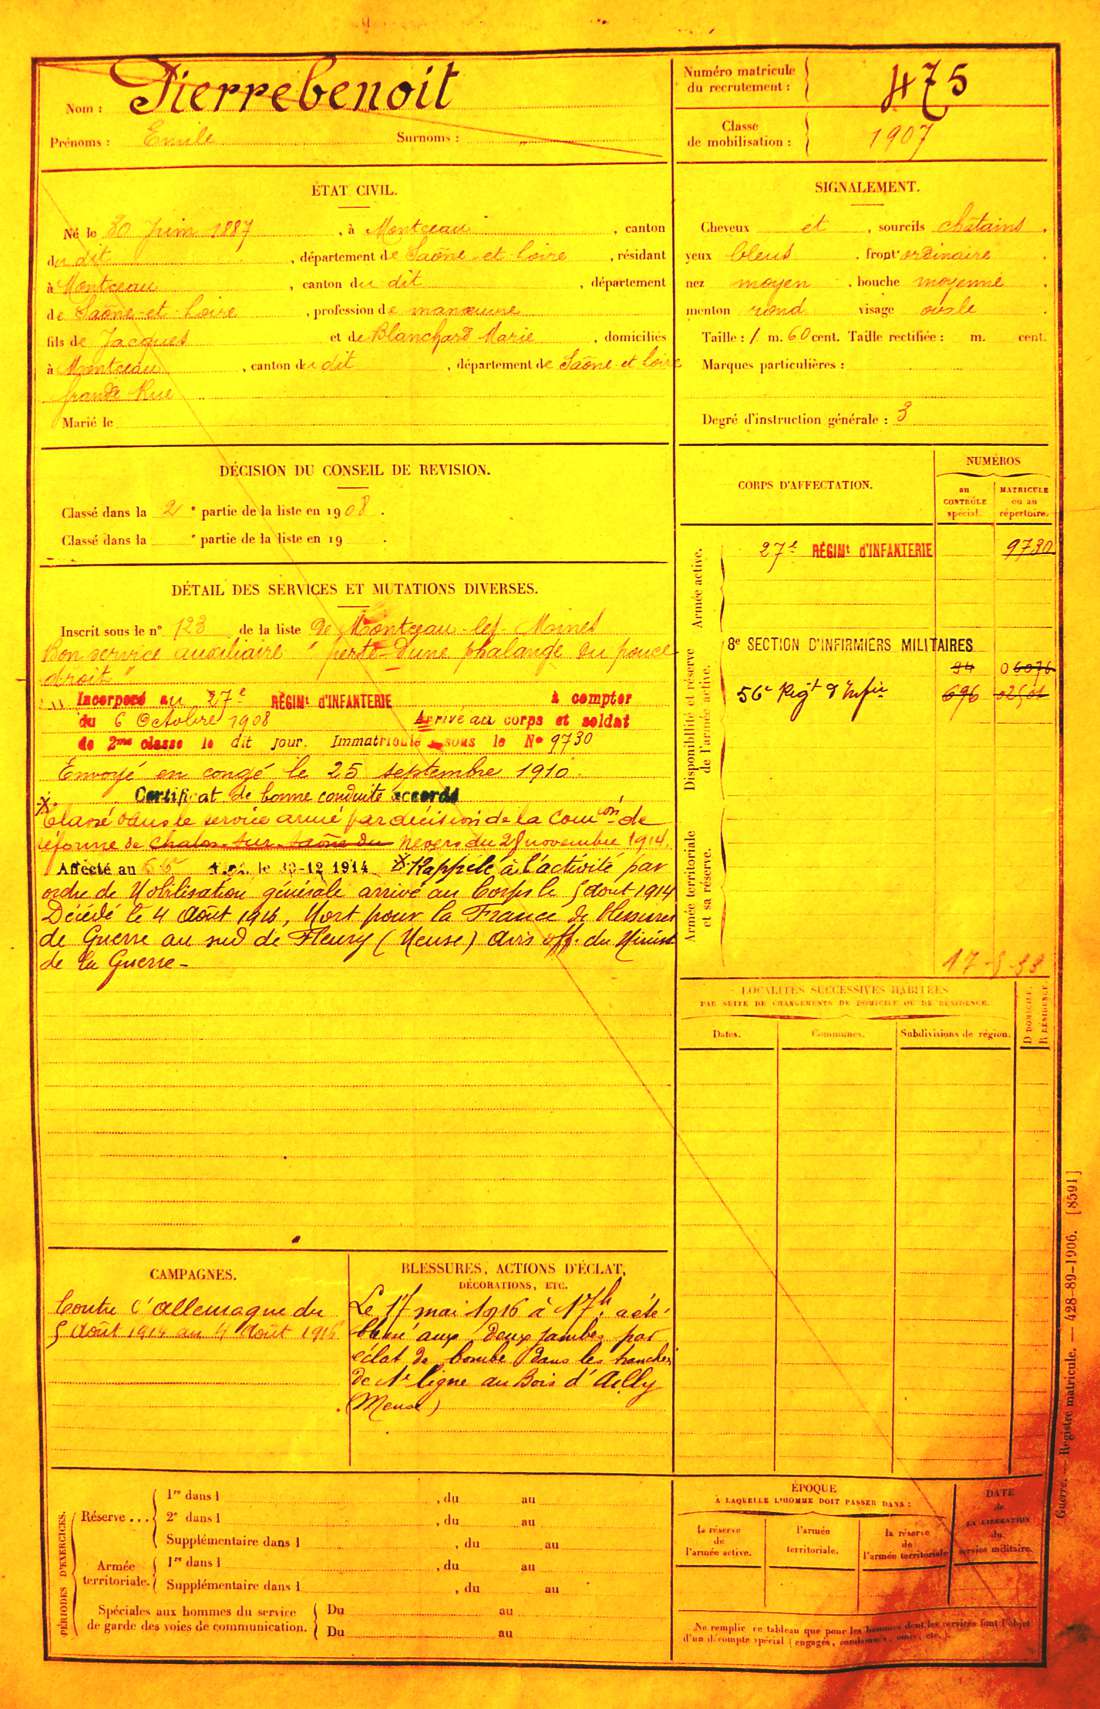 Nom : Pierrebenoit
Prénoms : Emile Surnoms : „
Numéro matricule du recrutement : 475
Classe de mobilisation : 1907
ÉTAT CIVIL.
Né le 30 Juin 1887, à Montceau, canton
du dit, département de Saône-et-Loire, résidant
à Montceau, canton du dit, département
de Saône-et-Loire, profession de manœuvre
fils de Jacques et de Blanchard Marie, domiciliés
à Montceau, canton du dit, département de Saône et Loire
grande Rue
Marié le
SIGNALEMENT.
Cheveux et, sourcils châtains.
yeux bleus, front ordinaire
nez moyen, bouche moyenne
menton rond visage ovale
Taille : 1 m. 60 cent. Taille rectifiée : m. cent.
Marques particulières :
Degré d'instruction générale : 3
DÉCISION DU CONSEIL DE REVISION.
Classé dans la 2e partie de la liste en 1908.
Classé dans la e partie de la liste en 19 .
DÉTAIL DES SERVICES ET MUTATIONS DIVERSES.
Inscrit sous le n° 123 de la liste de Montceau-les-Mines
Bon service auxiliaire " perte d'une phalange du pouce
droit "
Incorporé au 27e RÉGIMt d'INFANTERIE à compter
du 6 Octobre 1908 Arrivé au corps et soldat
de 2me classe le dit jour. Immatriculé sous le No 9730
Envoyé en congé le 25 septembre 1910.
Certificat de bonne conduite accordé
X. Classé dans le service armé par décision de la Comon de
réforme de Chalon-sur-Saône du Nevers du 28 novembre 1914.
Affecté au 56e le 30-12 1914 X. Rappelé à l'activité par
ordre de Mobilisation générale arrivé au Corps le 5 Août 1914
Décédé le 4 Août 1916, Mort pour la France de blessures
de Guerre au sud de Fleury (Meuse) avis off. du Minist
de la Guerre -
CORPS D'AFFECTATION.
NUMÉROS
au CONTRÔLE spécial.
MATRICULE ou au répertoire.
Armée active.
27e RÉGIMt d'INFANTERIE 9730
Disponibilité et réserve de l'armée active.
8e SECTION D'INFIRMIERS MILITAIRES
94 06076
56e Regt d'Infie 696
Armée territoriale et sa réserve.
LOCALITÉS SUCCESSIVES HABITÉES
PAR SUITE DE CHANGEMENTS DE DOMICILE OU DE RÉSIDENCE.
Dates. Communes. Subdivisions de région. D DOMICILE. R RÉSIDENCE.
CAMPAGNES.
Contre l'Allemagne du
5 Août 1914 au 4 Août 1916
BLESSURES, ACTIONS D'ÉCLAT,
DÉCORATIONS, ETC.
Le 17 mai 1916 à 17h, a été
blessé aux deux jambes par
éclat de bombe dans les tranchées
de 1re ligne au Bois d'Ailly
(Meuse)
PÉRIODES D'EXERCICES.
Réserve ...
1re dans l , du au
2e dans l , du au
Supplémentaire dans l , du au
Armée territoriale.
1re dans l , du au
Supplémentaire dans l , du au
Spéciales aux hommes du service
de garde des voies de communication.
Du au
Du au
ÉPOQUE
À LAQUELLE L'HOMME DOIT PASSER DANS :
la réserve de l'armée active.
l'armée territoriale.
la réserve de l'armée territoriale
DATE de LA LIBÉRATION du service militaire.
Ne remplir ce tableau que pour les hommes dont les services font l'objet
d'un décompte spécial (engagés, condamnés, omis, etc.).
Guerre. — Registre matricule. — 428-89-1906. [8591]